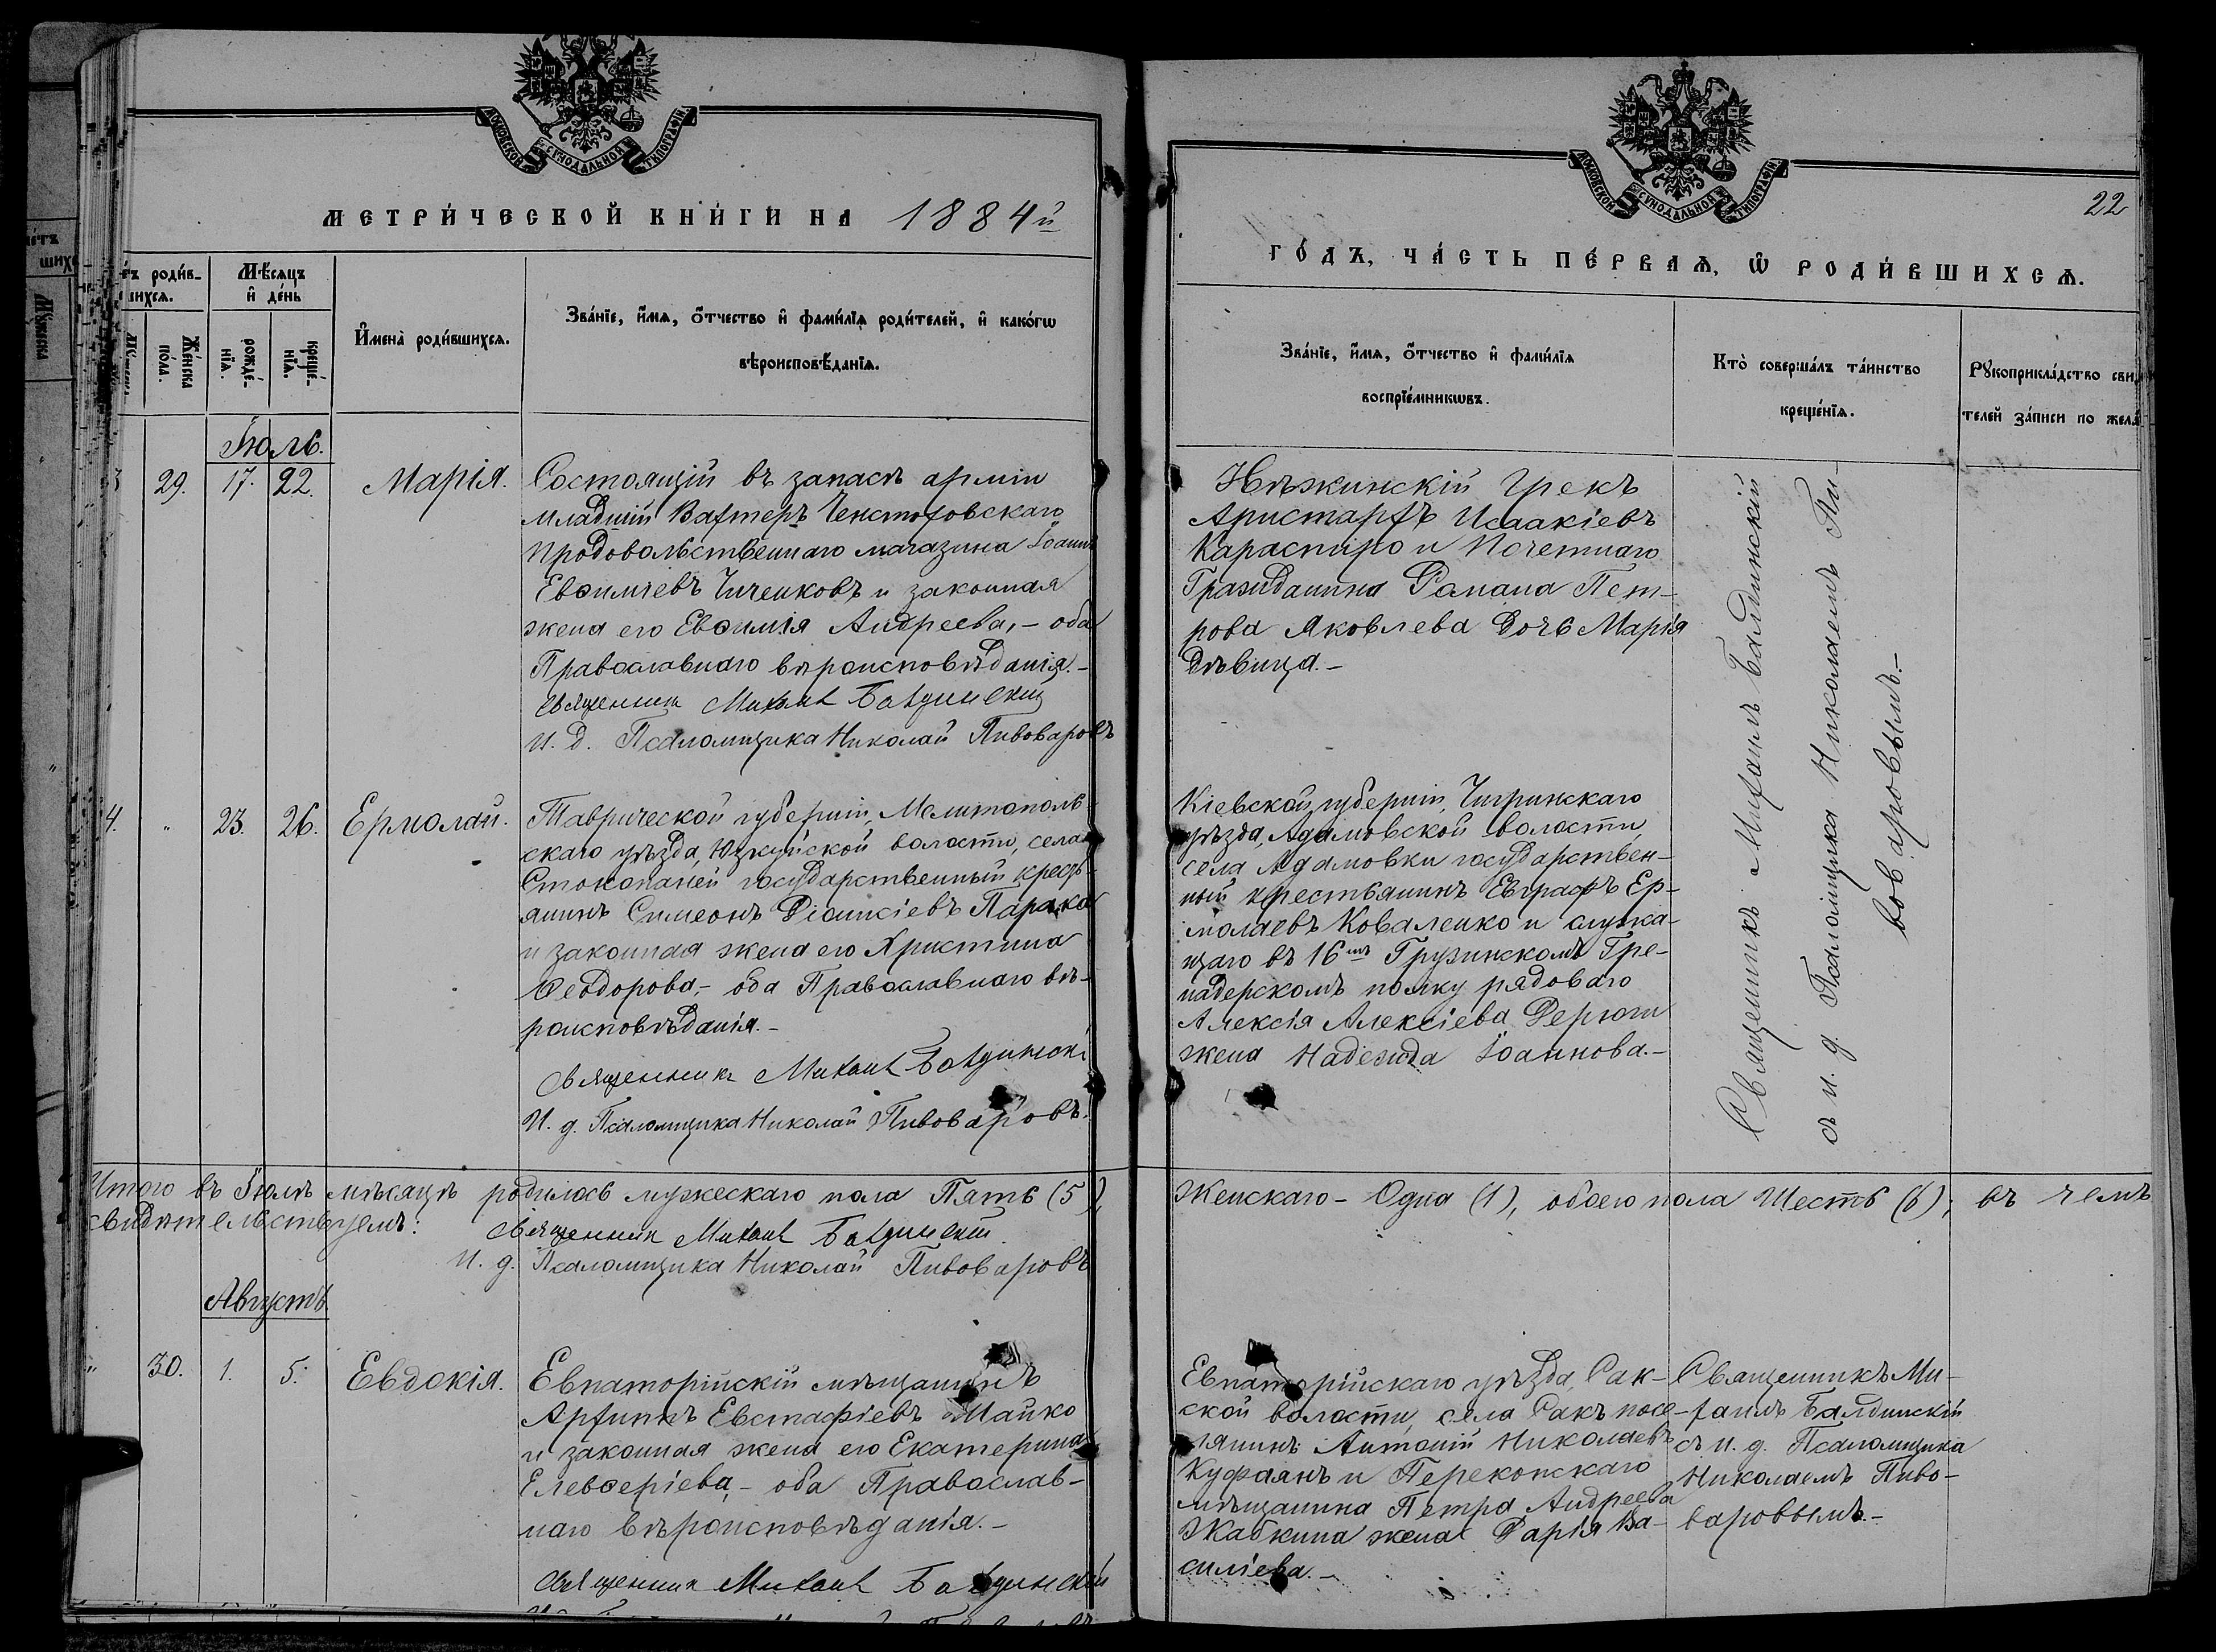 МОСКОВСКОЙ СѴНОДАЛЬНОЙ ТИПОГРАФІИ
МЕТРИ́ЧЕСКОЙ КНИ́ГИ НА 1884й
Мѣ́сяцъ и҆ де́нь
Же́нска по́ла.
рожде́-нїѧ.
креще́-нїѧ.
И҆мена̀ роди́вшихсѧ.
Зва́нїе, и҆́мѧ, ѻ҆́тчество и҆ фами́лїѧ роди́телей, и҆ како́гѡ
вѣроисповѣ́данїѧ.
Іюль.
29. 17. 22. Марія.
Состоящій въ запасѣ арміи
младшій Вахтеръ Ченстоховскаго
продовольственнаго магазина Іоаннъ
Евѳиміевъ Чиченковъ и законная
жена его Евѳимія Андреева, – оба
Православнаго вѣроисповѣданія. –
Священникъ Михаилъ Балдинскій
И. д. Псаломщика Николай Пивоваровъ
4. " 23. 26. Ермолай.
Таврической губерніи, Мелитополь-
скаго уѣзда, Юзкуйской волости, села
Стокопаней государственный кресть-
янинъ Симеонъ Діонисіевъ Парака
и законная жена его Христина
Ѳеодорова, – оба Православнаго вѣ-
роисповѣданія. –
Священникъ Михаилъ Балдинскі
И. д. Псаломщика Николай Пивоваровъ.
Итого въ Іюлѣ мѣсяцѣ родилось мужескаго пола Пять (5),
свидѣтельствуемъ:
Священникъ Михаилъ Балдинскій.
И. д. Псаломщика Николай Пивоваровъ
Августъ
" 30. 1. 5. Евдокія.
Евпаторійскій мѣщанинъ
Архиппъ Евстафіевъ Майко
и законная жена его Екатерина
Елевѳеріева, – оба Православ-
наго вѣроисповѣданія. –
Священникъ Михаилъ Балдинскій
МОСКОВСКОЙ СѴНОДАЛЬНОЙ ТИПОГРАФІИ
22
ГО́ДЪ, ЧА́СТЬ ПЕ́РВАѦ, Ѡ҆ РОДИ́ВШИХСѦ.
Зва́нїе, и҆́мѧ, ѻ҆́тчество и҆ фами́лїѧ
воспрїе́мникѡвъ.
Кто̀ соверша́лъ та́инство
креще́нїѧ.
Рꙋкоприкла́дство свид
телей за́писи по жела
Нѣжинскій Грекъ
Аристархъ Исаакіевъ
Караспиро и Почетнаго
Гражданина Романа Пет-
рова Яковлева дочь Марія
Дѣвица. –
Кіевской губерніи, Чигринскаго
уѣзда, Адамовской волости,
села Адамовки государствен-
ный крестьянинъ Евграфъ Ер-
молаевъ Коваленко и служа-
щаго въ 16мъ Грузинскомъ Гре-
надерскомъ полку рядоваго
Алексія Алексіева Дерюги
жена Надежда Іоаннова. –
Священникъ Михаилъ Балдинскій
съ и. д. Псаломщика Николаемъ Пи-
воваровымъ. –
Женскаго – Одна (1), обоего пола Шесть (6); въ чемъ
Евпаторійскаго уѣзда, Сак-
ской волости, села Сакъ посе-
лянинъ Антоній Николаевъ
Куфаянъ и Перекопскаго
мѣщанина Петра Андреева
Жабкина жена Дарія Ва-
силіева. –
Священникъ Ми-
хаилъ Балдинскій
съ и. д. Псаломщика
Николаемъ Пиво-
варовымъ. –